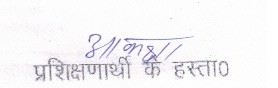 आकांक्षा
प्रशिक्षणार्थी के हस्ता0